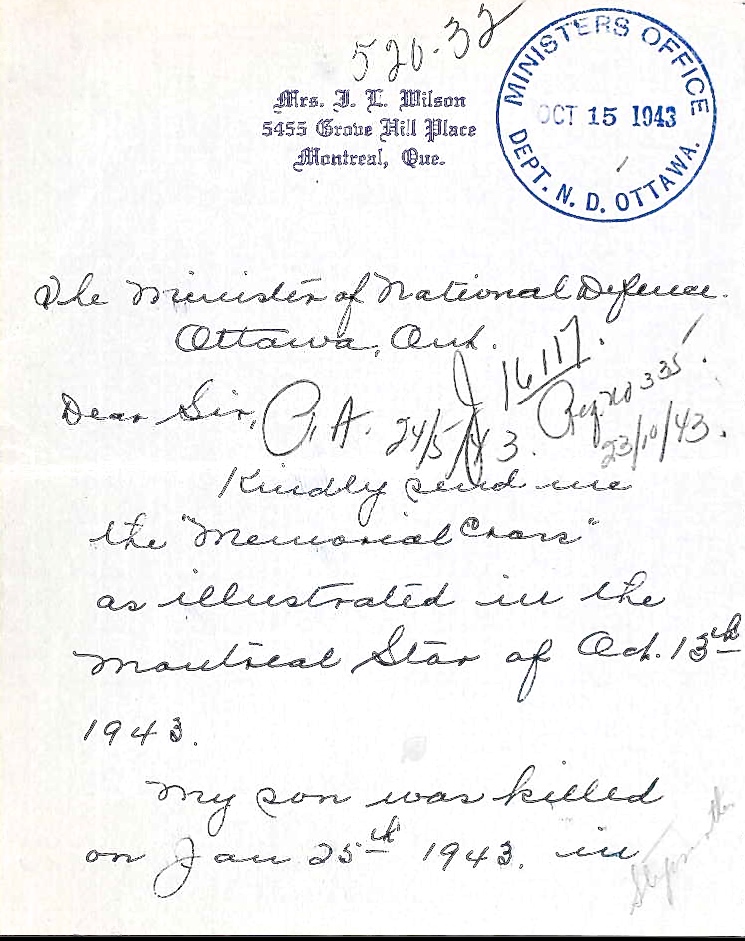 520-32
Mrs. J. L. Wilson
5455 Grove Hill Place
Montreal, Que.
MINISTERS OFFICE
OCT 15 1943
DEPT. N. D. OTTAWA.
The Minister of National Defence.
Ottawa, Ont.
J 16117.
Dear Sir,
P.A. 24/5/43.
Req no 335.
23/10/43.
Kindly send me
the "Memorial Cross"
as illustrated in the
Montreal Star of Oct. 13th
1943.
My son was killed
on Jan 25th 1943. in
Stepmother